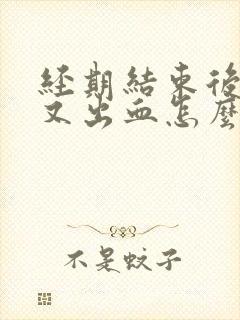 經期結束後
又出血怎麼
不是蚊子